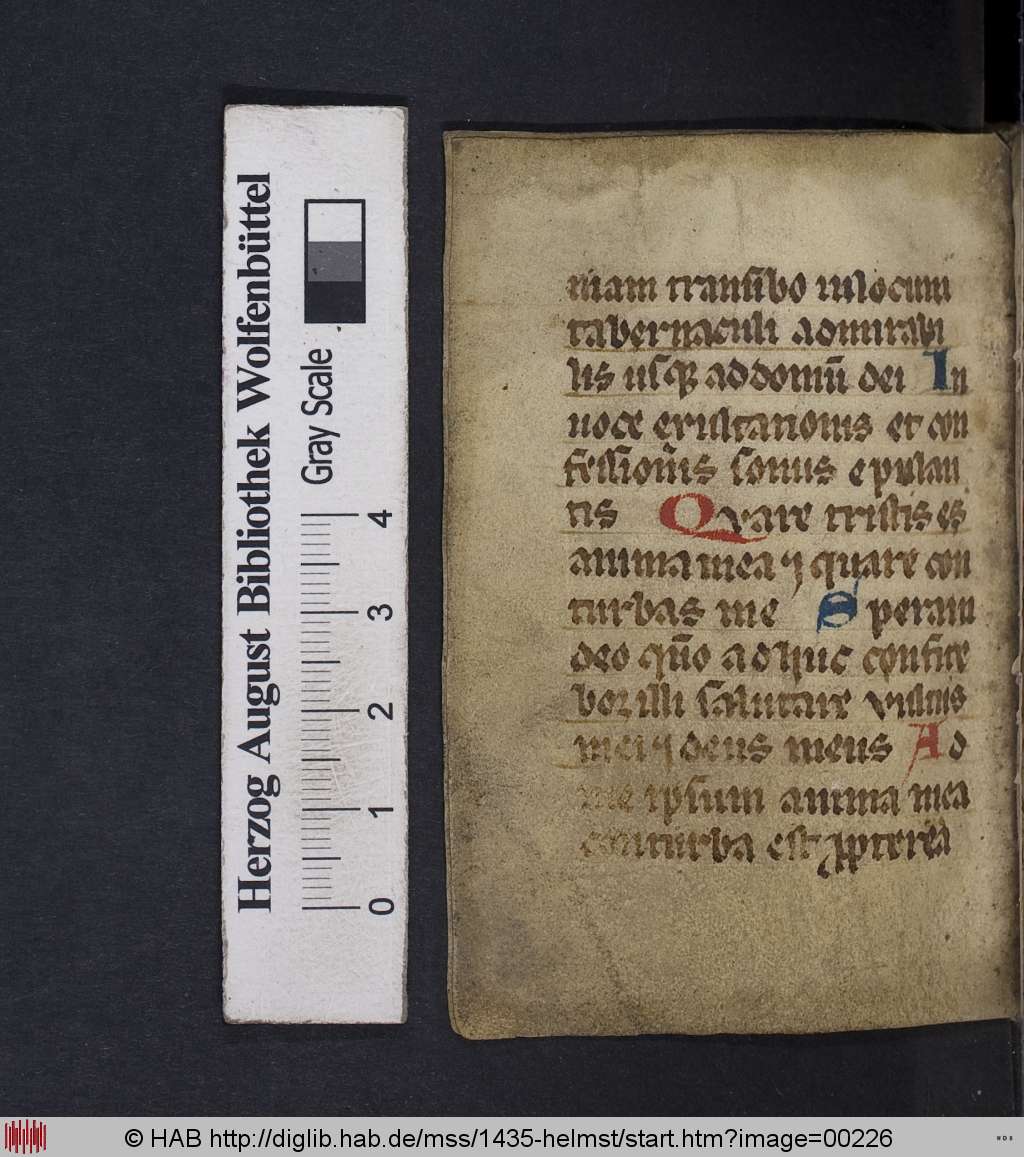 Herzog August Bibliothek Wolfenbüttel
Gray Scale
0 1 2 3 4
niam transibo in locum
tabernaculi admirabi
lis usq; ad domū dei In
uoce exultationis et con
fessionis sonus epulan
tis Qvare tristis es
anima mea ⁊ quare con
turbas me Spera in
deo qm̄o adhuc confite
bor illi salutare vultus
mei ⁊ deus meus Ad
me ipsum anima mea
conturba est ꝓpterea
© HAB http://diglib.hab.de/mss/1435-helmst/start.htm?image=00226